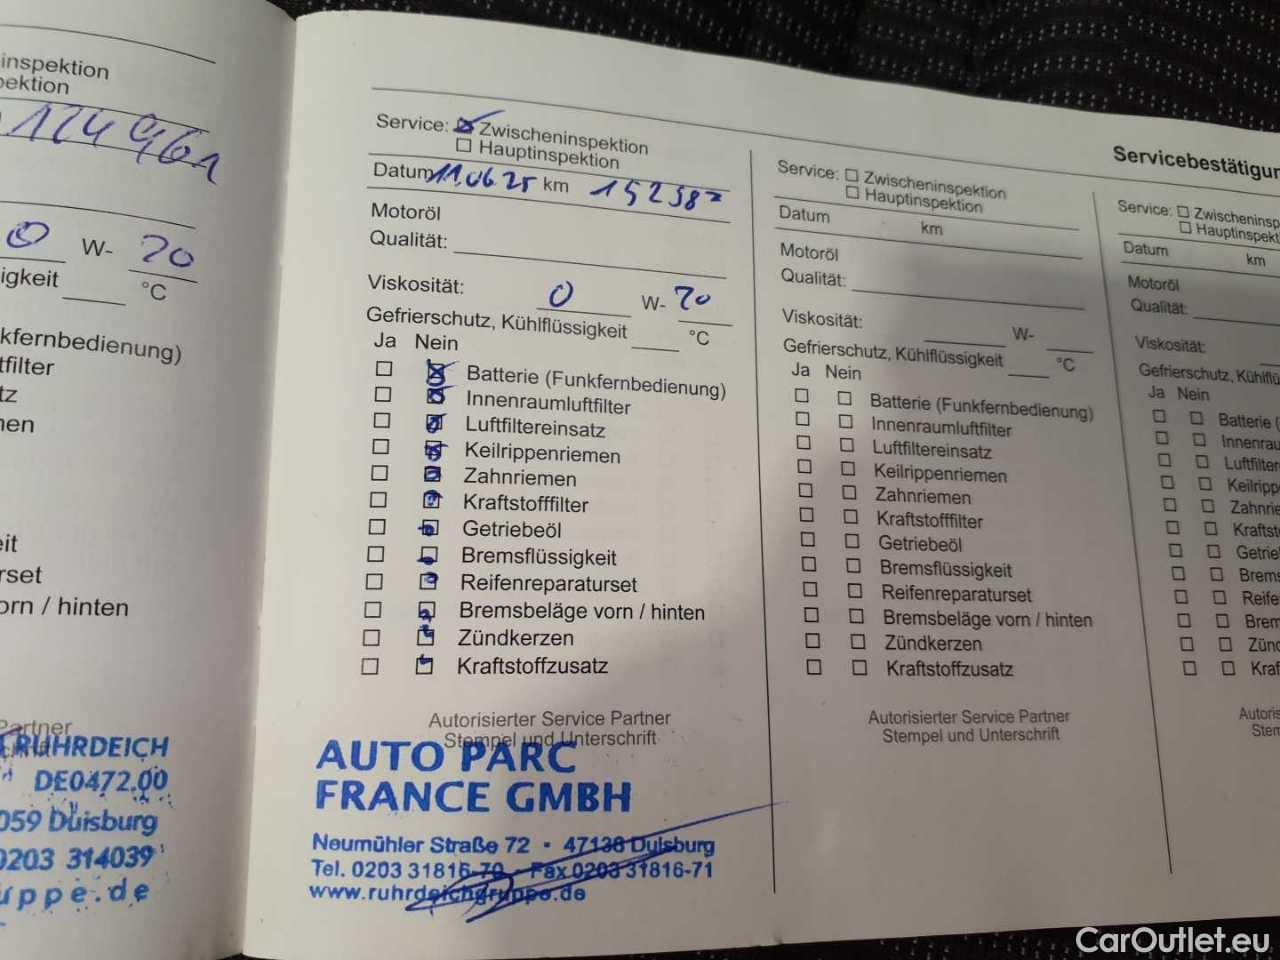 inspektion
pektion
124961
0 W- 20
igkeit °C
kfernbedienung)
tfilter
tz
en
it
rset
orn / hinten
Partner
RUHRDEICH
DE0472.00
059 Duisburg
0203 314039
uppe.de
Service: Zwischeninspektion
Hauptinspektion
Datum 11.06.25 km 152387
Motoröl
Qualität:
Viskosität: 0 W- 20
Gefrierschutz, Kühlflüssigkeit °C
Ja Nein
Batterie (Funkfernbedienung)
Innenraumluftfilter
Luftfiltereinsatz
Keilrippenriemen
Zahnriemen
Kraftstofffilter
Getriebeöl
Bremsflüssigkeit
Reifenreparaturset
Bremsbeläge vorn / hinten
Zündkerzen
Kraftstoffzusatz
Autorisierter Service Partner
Stempel und Unterschrift
AUTO PARC
FRANCE GMBH
Neumühler Straße 72 • 47138 Duisburg
Tel. 0203 31816-70 - Fax 0203 31816-71
www.ruhrdeichgruppe.de
Servicebestätigun
Service: Zwischeninspektion
Hauptinspektion
Datum km
Motoröl
Qualität:
Viskosität: W-
Gefrierschutz, Kühlflüssigkeit °C
Ja Nein
Batterie (Funkfernbedienung)
Innenraumluftfilter
Luftfiltereinsatz
Keilrippenriemen
Zahnriemen
Kraftstofffilter
Getriebeöl
Bremsflüssigkeit
Reifenreparaturset
Bremsbeläge vorn / hinten
Zündkerzen
Kraftstoffzusatz
Autorisierter Service Partner
Stempel und Unterschrift
Service: Zwischeninsp
Hauptinspekt
Datum km
Motoröl
Qualität:
Viskosität:
Gefrierschutz, Kühlflüs
Ja Nein
Batterie (
Innenrau
Luftfilter
Keilrippe
Zahnrie
Kraftst
Getrie
Brems
Reife
Brem
Zünd
Kraf
Autoris
Stem
CarOutlet.eu